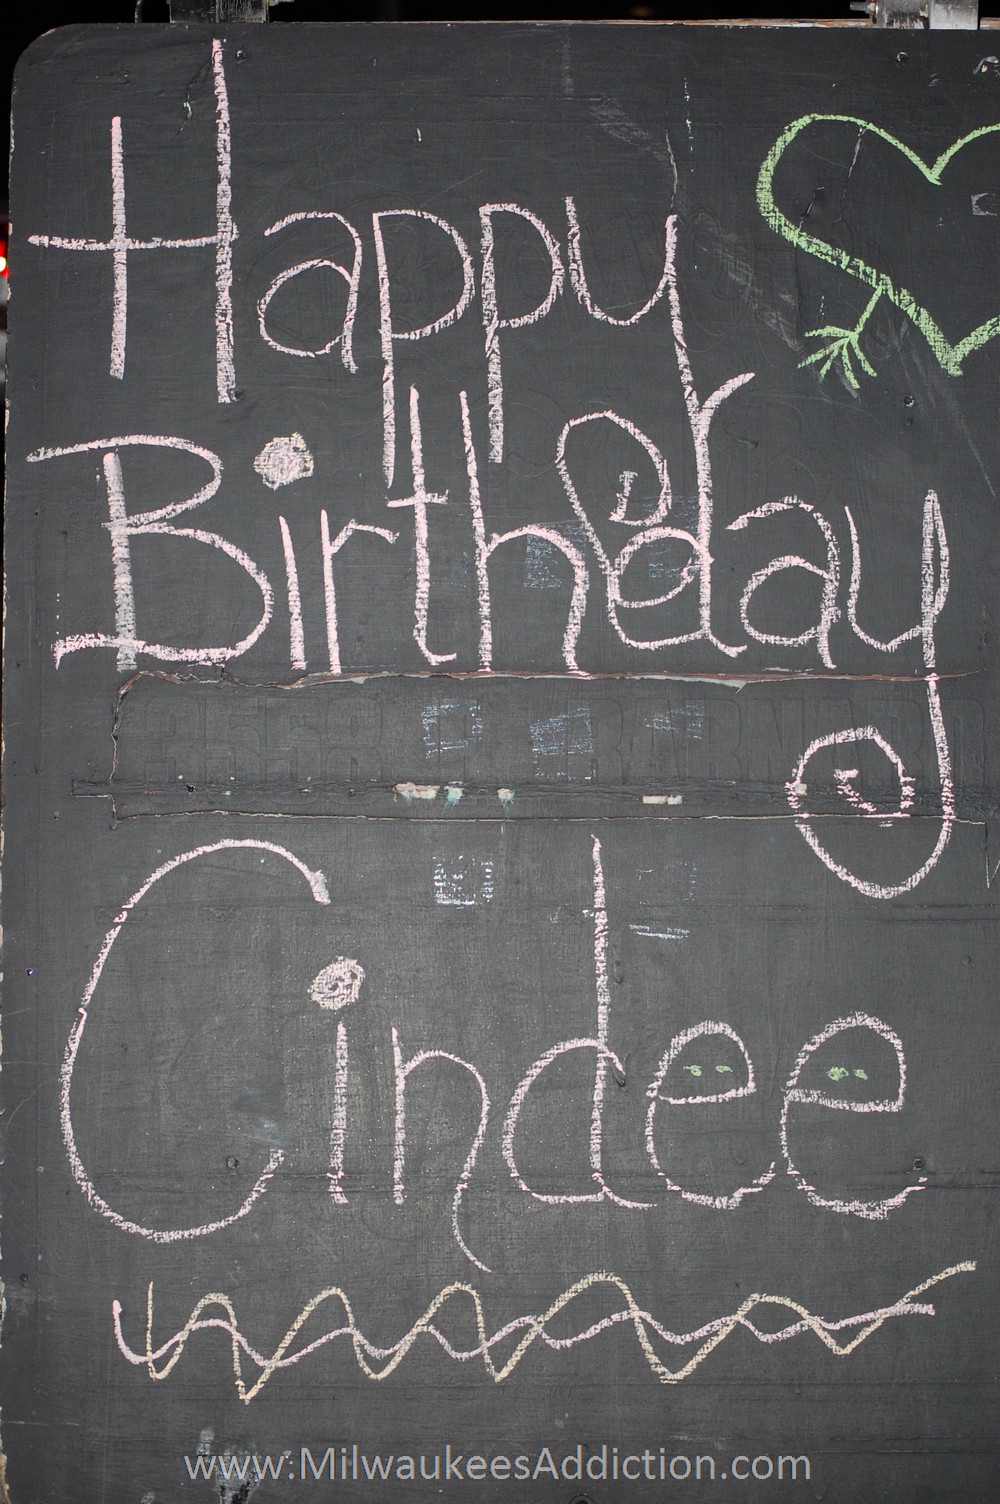 Happy
Birthday
Cindee
www.MilwaukeesAddiction.com